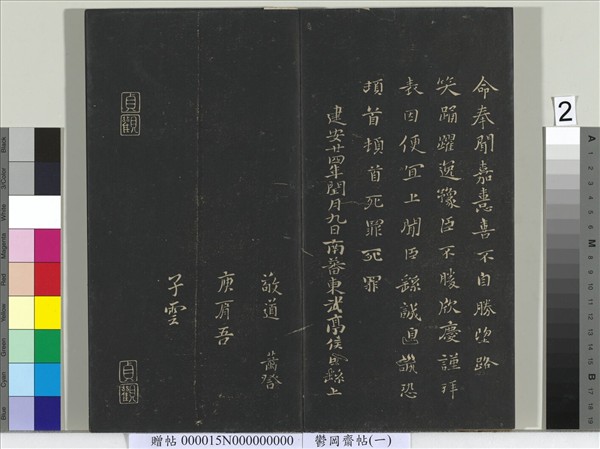 命奉聞嘉憙喜不自勝望路
笑踊躍逸豫臣不勝欣慶謹拜
表因便宜上聞臣繇誠皇誠恐
頓首頓首死罪死罪
建安廿四年閏月九日南蕃東武亭侯臣繇上
敬道
庾肩吾
子雲
貞觀
貞觀
2
贈帖 000015N000000000 鬱岡齋帖(一)